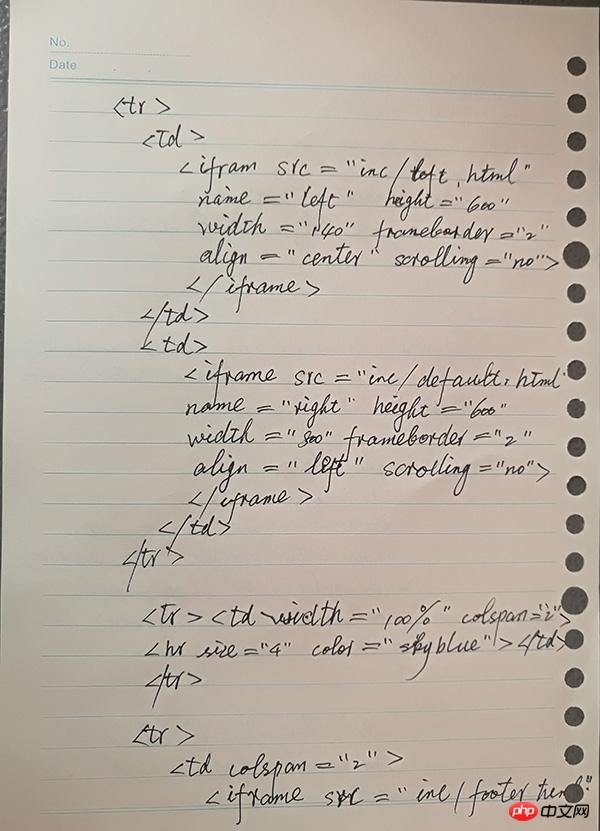 No.
Date
<tr>
<td>
<ifram src = "inc/left.html"
name = "left" height = "600"
width = "140" frameborder = "2"
align = "center" scrolling = "no">
</iframe>
</td>
<td>
<iframe src = "inc/default.html
name = "right" height = "600"
width = "800" frameborder = "2"
align = "left" scrolling = "no">
</iframe>
</td>
</tr>
<tr> <td width = "100%" colspan = "2">
<hr size = "4" color = "skyblue"> </td>
</tr>
<tr>
<td colspan = "2">
<iframe src = "inc/footer
php 中文网